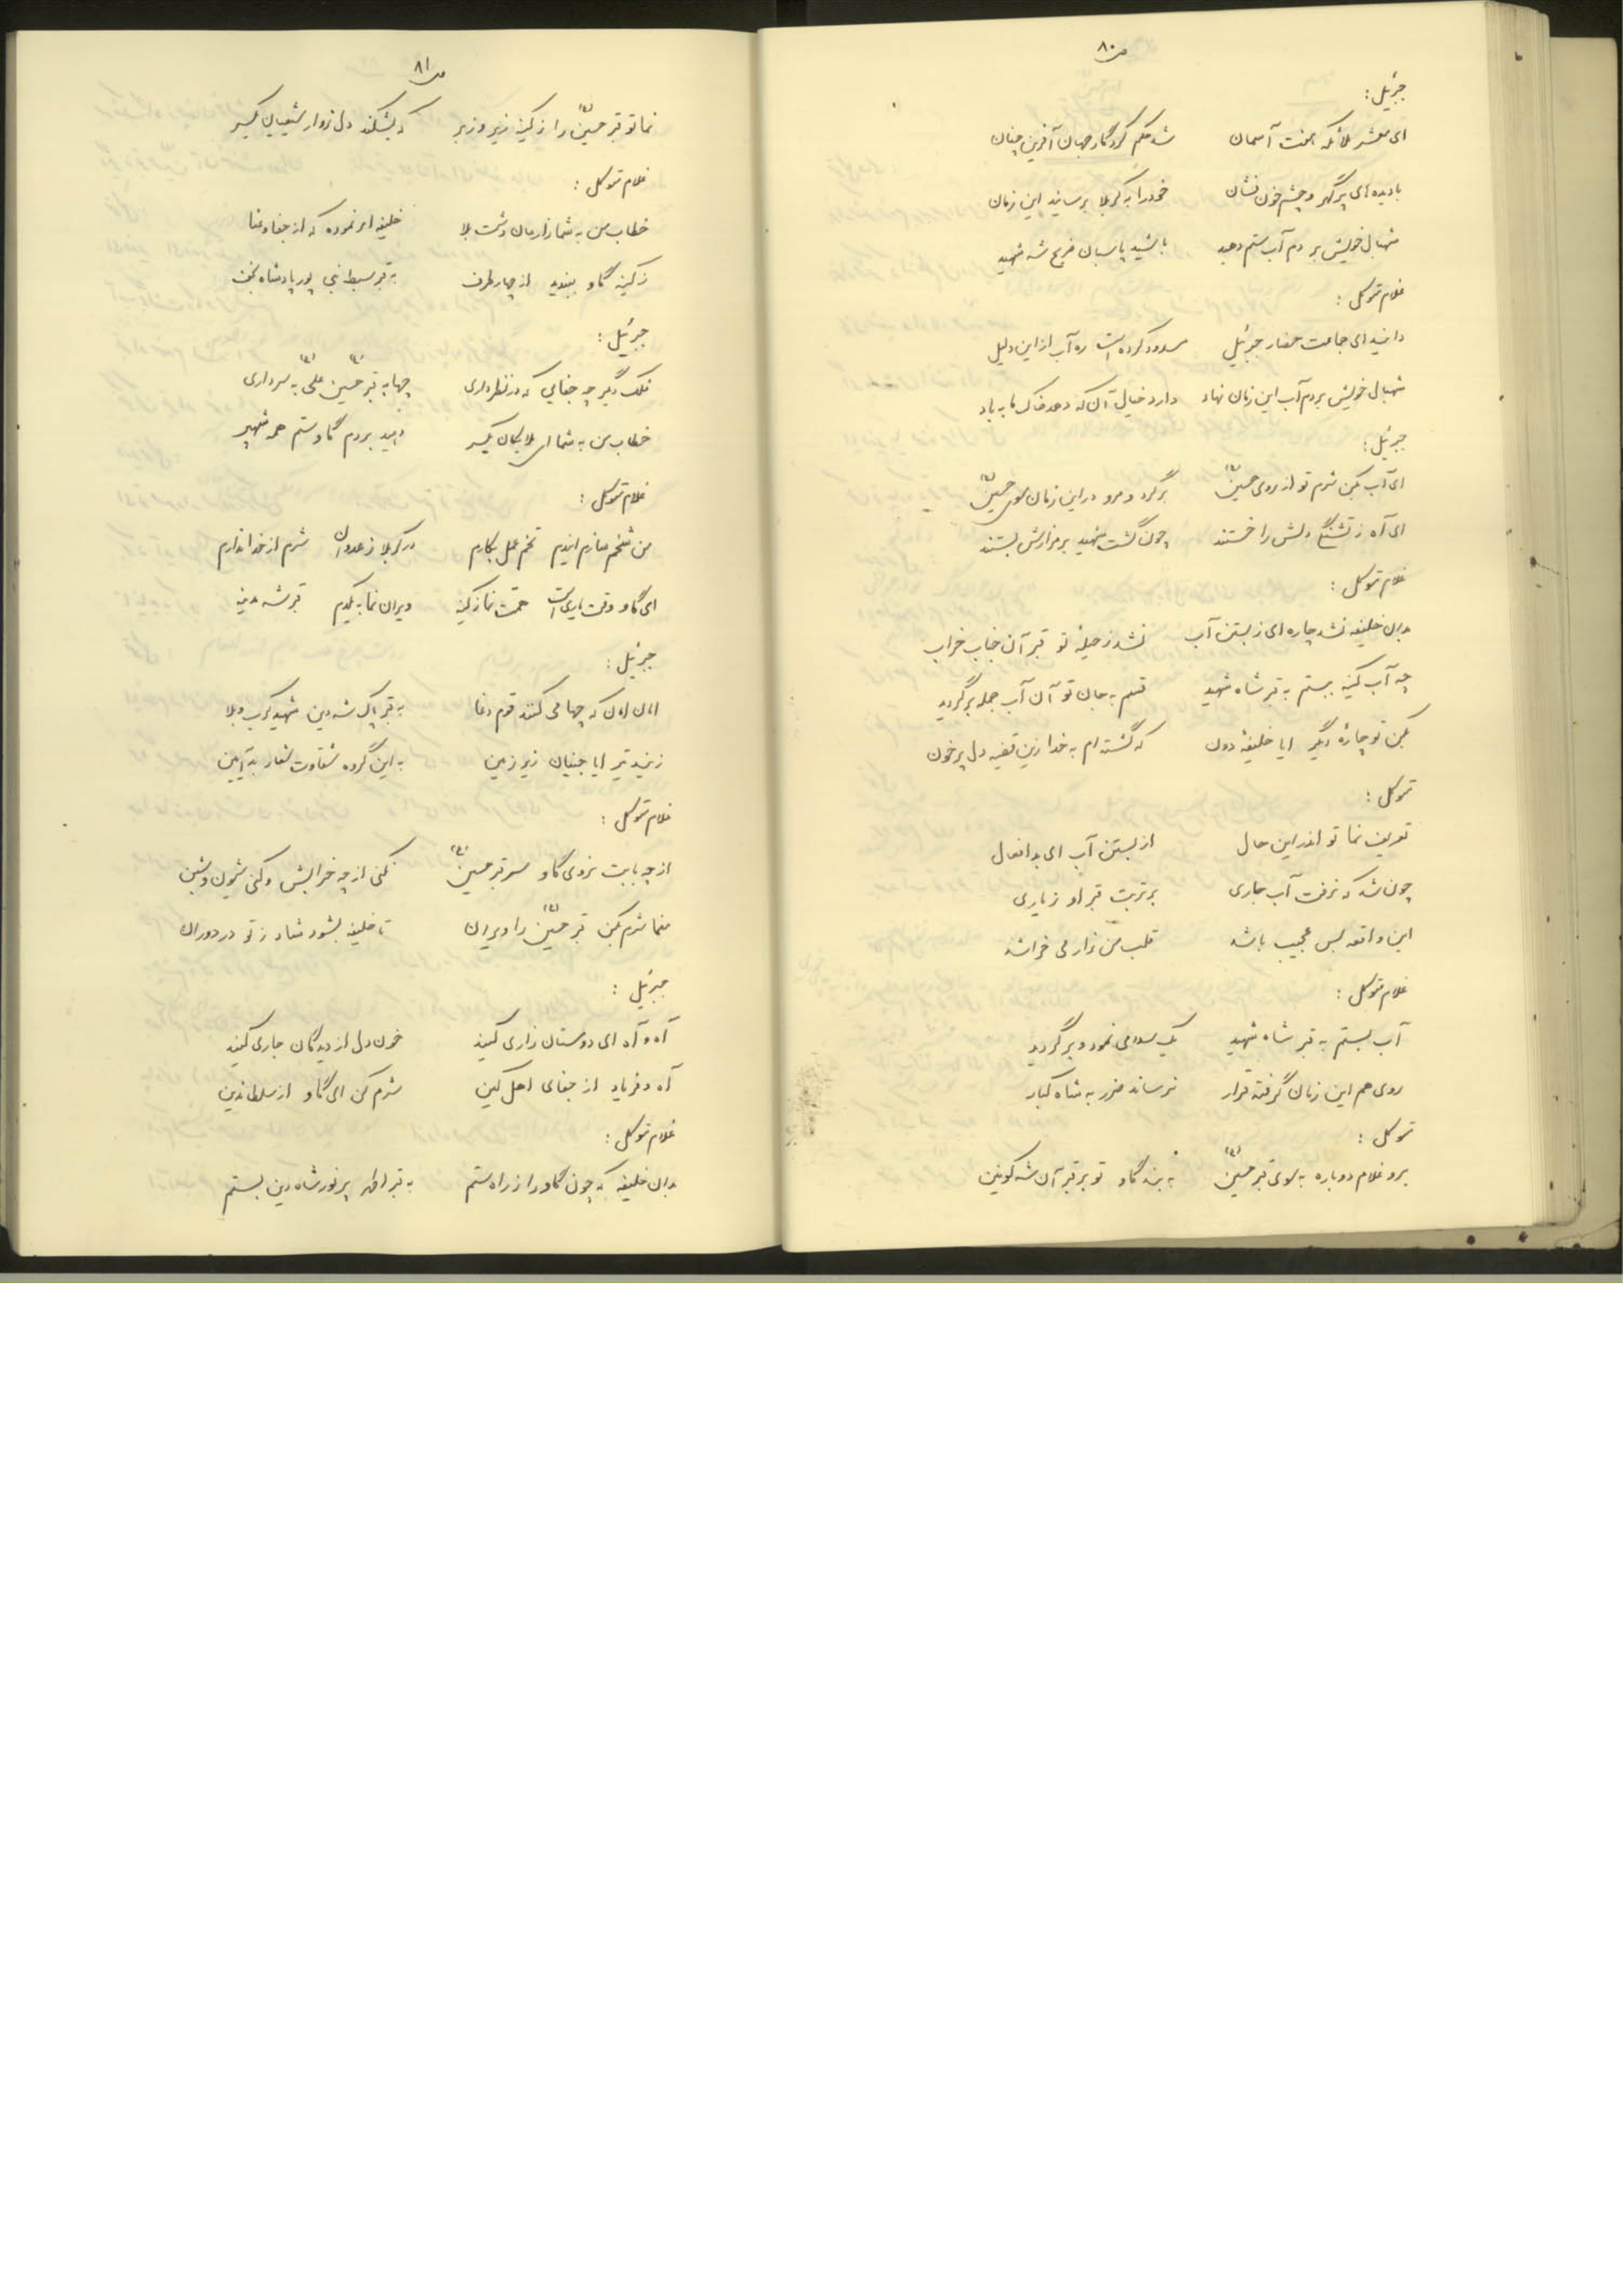 ص۸۰
جبرئیل :
ای معشر ملائکه هفت آسمان شد حکم کردگار جهان آفرین چنان
با دیده های پر گهر و چشم خون فشان خود را به کربلا برسانید این زمان
شهبال خویش بر دم آب ستم دهید باشید پاسبان ضریح شه شهید
غلام متوکل :
دانید ای جماعت حضار جبرئیل مسدود کرده است ره آب از این دلیل
شهبال خویش بر دم آب این زمان نهاد دارد خیال آن که دهد خاک ما به باد
جبرئیل :
ای آب بکن شرم تو از روی حسین (ع) برگرد و مرو در این زمان سوی حسین (ع)
ای آه ز تشنگی دلش را خستند چون گشت شهید بر مزارش بستند
غلام متوکل :
بدان خلیفه نشد چاره ای ز بستن آب نشد ز حیلهٔ تو قبر آن جناب خراب
چه آب کینه ببستم به قبر شاه شهید قسم به جان تو آن آب جمله برگردید
بکن تو چارهٔ دیگر ایا خلیفهٔ دون که گشته ام به خدا زین قضیه دل پر خون
متوکل :
تعریف نما تو اندر این حال از بستن آب ای بد افعال
چون شد که نرفت آب جاری بر تربت قبر او ز یاری
این واقعه بس عجیب باشد قلب من زار می خراشد
غلام متوکل :
آب بستم به قبر شاه شهید یک سلامی نمود و برگردید
روی هم این زمان گرفته قرار نرساند ضرر به شاه کبار
متوکل :
برو غلام دوباره به سوی قبر حسین (ع) به بند گاو تو بر قبر آن شه کونین
ص۸۱
نما تو قبر حسین (ع) را ز کینه زیر و زبر که بشکند دل زوار شیعیان یکسر
غلام متوکل :
خطاب من به شما زارعان دشت بلا خلیفه امر نموده که از جفا و عنا
ز کینه گاو ببندید از چهار طرف به قبر سبط نبی پور پادشاه نجف
جبرئیل :
فلک دگر چه جفایی که در نظر داری چها به قبر حسین (ع) علی (ع) به سر داری
خطاب من به شما ای ملایکان یکسر دهید بر دم گاو ستم همه شهپر
غلام متوکل :
من شخم سازم ایندم تخم عمل بکارم در کربلا ز عدوان شرم از خدا ندارم
ای گاو وقت یاری است همت نما ز کینه ویران نما به یکدم قبر شه مدینه
جبرئیل :
امان امان که چها می کنند قوم دغا به قبر پاک شه دین شهید کرب و بلا
زنید تیر ایا جنیان زیر زمین به این گروه شقاوت شعار بد آیین
غلام متوکل :
از چه بابت نروی گاو سر قبر حسین (ع) نکنی از چه خرابش و کنی شیون و شین
منما شرم بکن قبر حسین (ع) را ویران تا خلیفه بشود شاد ز تو در دوران
جبرئیل :
آه و آه ای دوستان زاری کنید خون دل از دیدگان جاری کنید
آه و فریاد از جفای اهل کین شرم کن ای گاو از سلطان دین
غلام متوکل :
بدان خلیفه که چون گاو را ز راه ستم به قبر اطهر پر نور شاه دین بستم